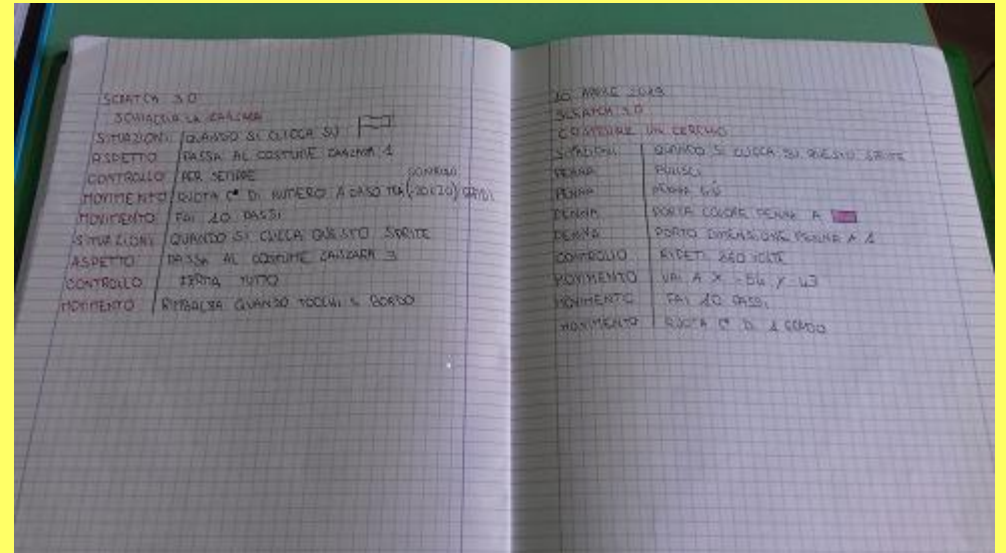 SCRATCH 3.0
SCHIACCIA LA ZANZARA
SITUAZIONI QUANDO SI CLICCA SU
ASPETTO PASSA AL COSTUME ZANZARA 1
CONTROLLO PER SEMPRE
MOVIMENTO RUOTA DI NUMERO A CASO TRA (-20 E 20) GRADI
MOVIMENTO FAI 10 PASSI
SITUAZIONI QUANDO SI CLICCA QUESTO SPRITE
ASPETTO PASSA AL COSTUME ZANZARA 3
CONTROLLO FERMA TUTTO
MOVIMENTO RIMBALZA QUANDO TOCCHI IL BORDO
10 APRILE 2019
SCRATCH 3.0
COSTRUIRE UN CERCHIO
SITUAZIONI QUANDO SI CLICCA SU QUESTO SPRITE
PENNA PULISCI
PENNA PENNA GIÙ
PENNA PORTA COLORE PENNA A
PENNA PORTO DIMENSIONE PENNA A 1
CONTROLLO RIPETI 360 VOLTE
MOVIMENTO VAI A X -54 Y -43
MOVIMENTO FAI 10 PASSI
MOVIMENTO RUOTA DI 1 GRADO